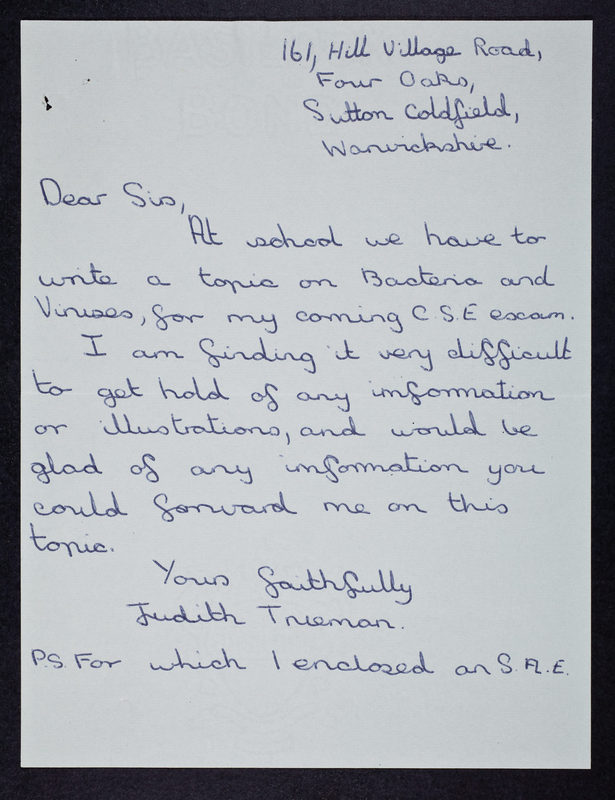 161, Hill Village Road,
Four Oaks,
Sutton Coldfield,
Warwickshire.
Dear Sirs,
At school we have to
write a topic on Bacteria and
Viruses, for my coming C.S.E escam.
I am finding it very difficult
to get hold of any information
or illustrations, and would be
glad of any information you
could forward me on this
topic.
Yours faithfully
Judith Trueman.
P.S. For which I enclosed an S.A.E.